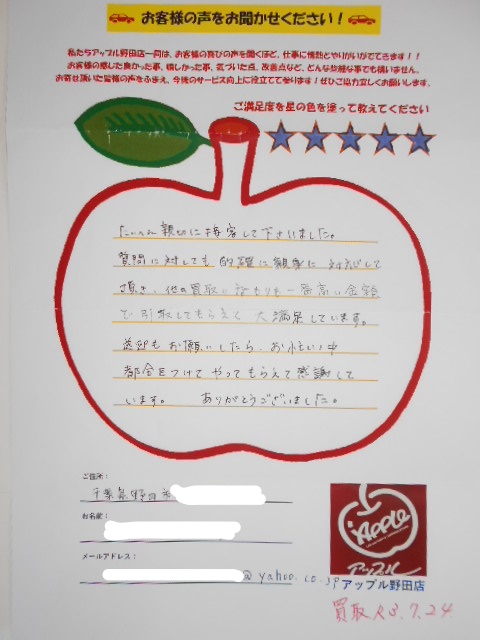 お客様の声をお聞かせください！
私たちアップル野田店一同は、お客様の喜びの声を聞くほど、仕事に情熱とやりがいがでてきます！！
お客様の感じた良かった事、嬉しかった事、気づいた点、改善点など、どんな些細な事でも構いません。
お寄せ頂いた皆様の声をふまえ、今後のサービス向上に役立てて参ります！ぜひご協力宜しくお願いします。
ご満足度を星の色を塗って教えてください
たいへん親切に接客して下さいました。
質問に対しても的確に親身に対応して
頂き、他の買取見積もりも一番高い金額
で引取してもらえて大満足しています。
送迎もお願いしたら、お忙しい中
都合をつけてやってもらえて感謝して
います。 ありがとうございました。
ご住所：
千葉県野田市
お名前：
メールアドレス：
@yahoo.co.jp
APPLE
アップル
アップル野田店
買取 R3.7.24.